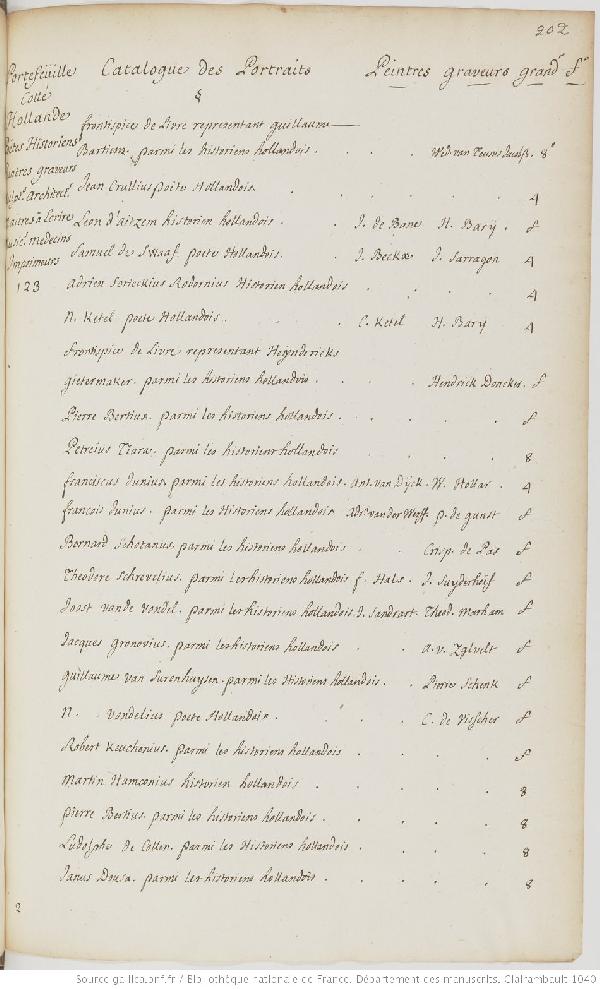 202
Portefeuille Catalogue des Portraits Peintres graveurs grandr
Collé
Hollande
frontispice de Livre representant guillaume
Bartiens. parmi les historiens hollandois. 8
Jean Crullius poete Hollandois 4
Leon d'aitzem historien hollandois. J. de Bane H. Bary. f
Samuel de Swaaf. poete Hollandois. J. Beckæ J. Sarragon 4
Adrien Scrieckius Rodornius Historien hollandois 4
N. Ketel poete Hollandois. C. Ketel H. Bary 4
frontispice de Livre representant Heynderick
gietermaker. parmi les historiens hollandois. Hendrick Doncker. f
Pierre Bertius. parmi les historiens hollandois. f
Petreius Tiara. parmi les historiens hollandois 8
franciscus Junius. parmi les historiens hollandois. Ant. van Dÿck. W. Hollar. 4
françois Junius. parmi les Historiens hollandois Adr. vander Werff. p. de gunst f
Bernard Schotanus. parmi les historiens hollandois Crisp. de Pas f
Theodore Schrevelius. parmi les historiens hollandois f. Hals. J. Suyderhoef f
Joost vande Vondel. parmi les historiens hollandois J. Sandrart. Theod. Matham f
Jacques Gronovius. parmi les historiens hollandois a. v. Zylvelt f
guillaume van Surenhuysen. parmi les Historiens hollandois. Pierre Schenk f
N. Vondelius poete Hollandois. C. de Visscher f
Robert Keuchenius. parmi les historiens hollandois f
Martin Hamconius historien hollandois 8
pierre Bertius. parmi les historiens hollandois 8
Ludolphe de Collen. parmi les Historiens hollandois 8
Janus Dousa. parmi les historiens hollandois. 8
Poetes Historiens
graveurs
Architect.
medecins
Imprimeurs
123
2
Source gallica.bnf.fr / Bibliothèque nationale de France. Département des manuscrits. Clairambault 1040